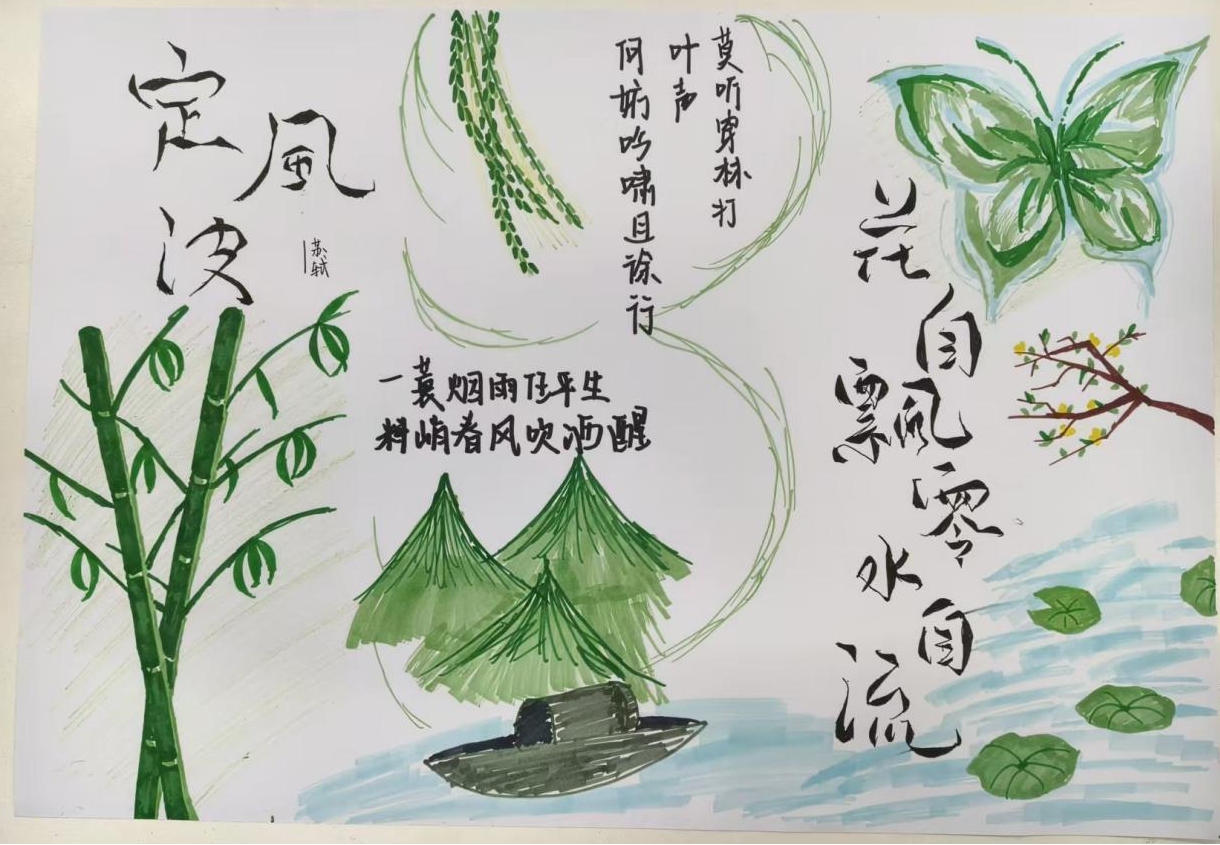 定風波
苏轼
莫听穿林打
叶声
何妨吟啸且徐行
一蓑烟雨任平生
料峭春风吹洒醒
花自飘零水自流